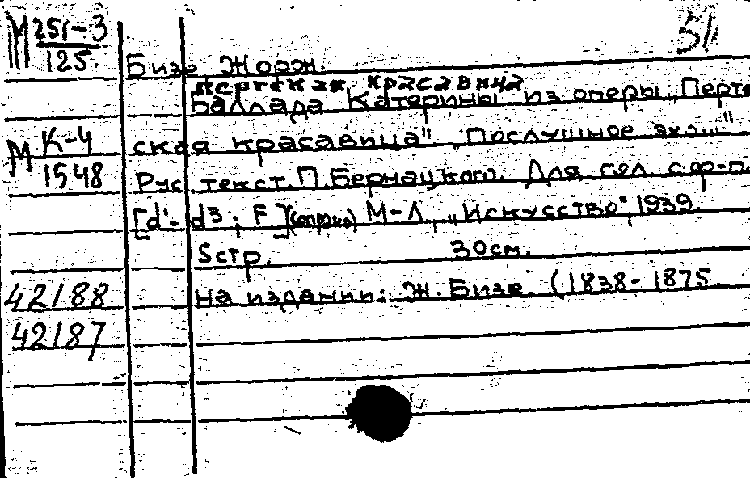 М 251-3
125
51
Бизе Жорж.
Пертская красавица
Баллада Катерины из оперы „Перт-
М К-4
1548
ская красавица" „Послушное эхо..."
Рус. текст. П. Бернацкого. Для гол. с ф-п.
[d'- d3; F] (сопрано) М-Л, „Искусство", 1939.
5стр. 30см.
На издании: Ж. Бизе (1838-1875
42188
42187